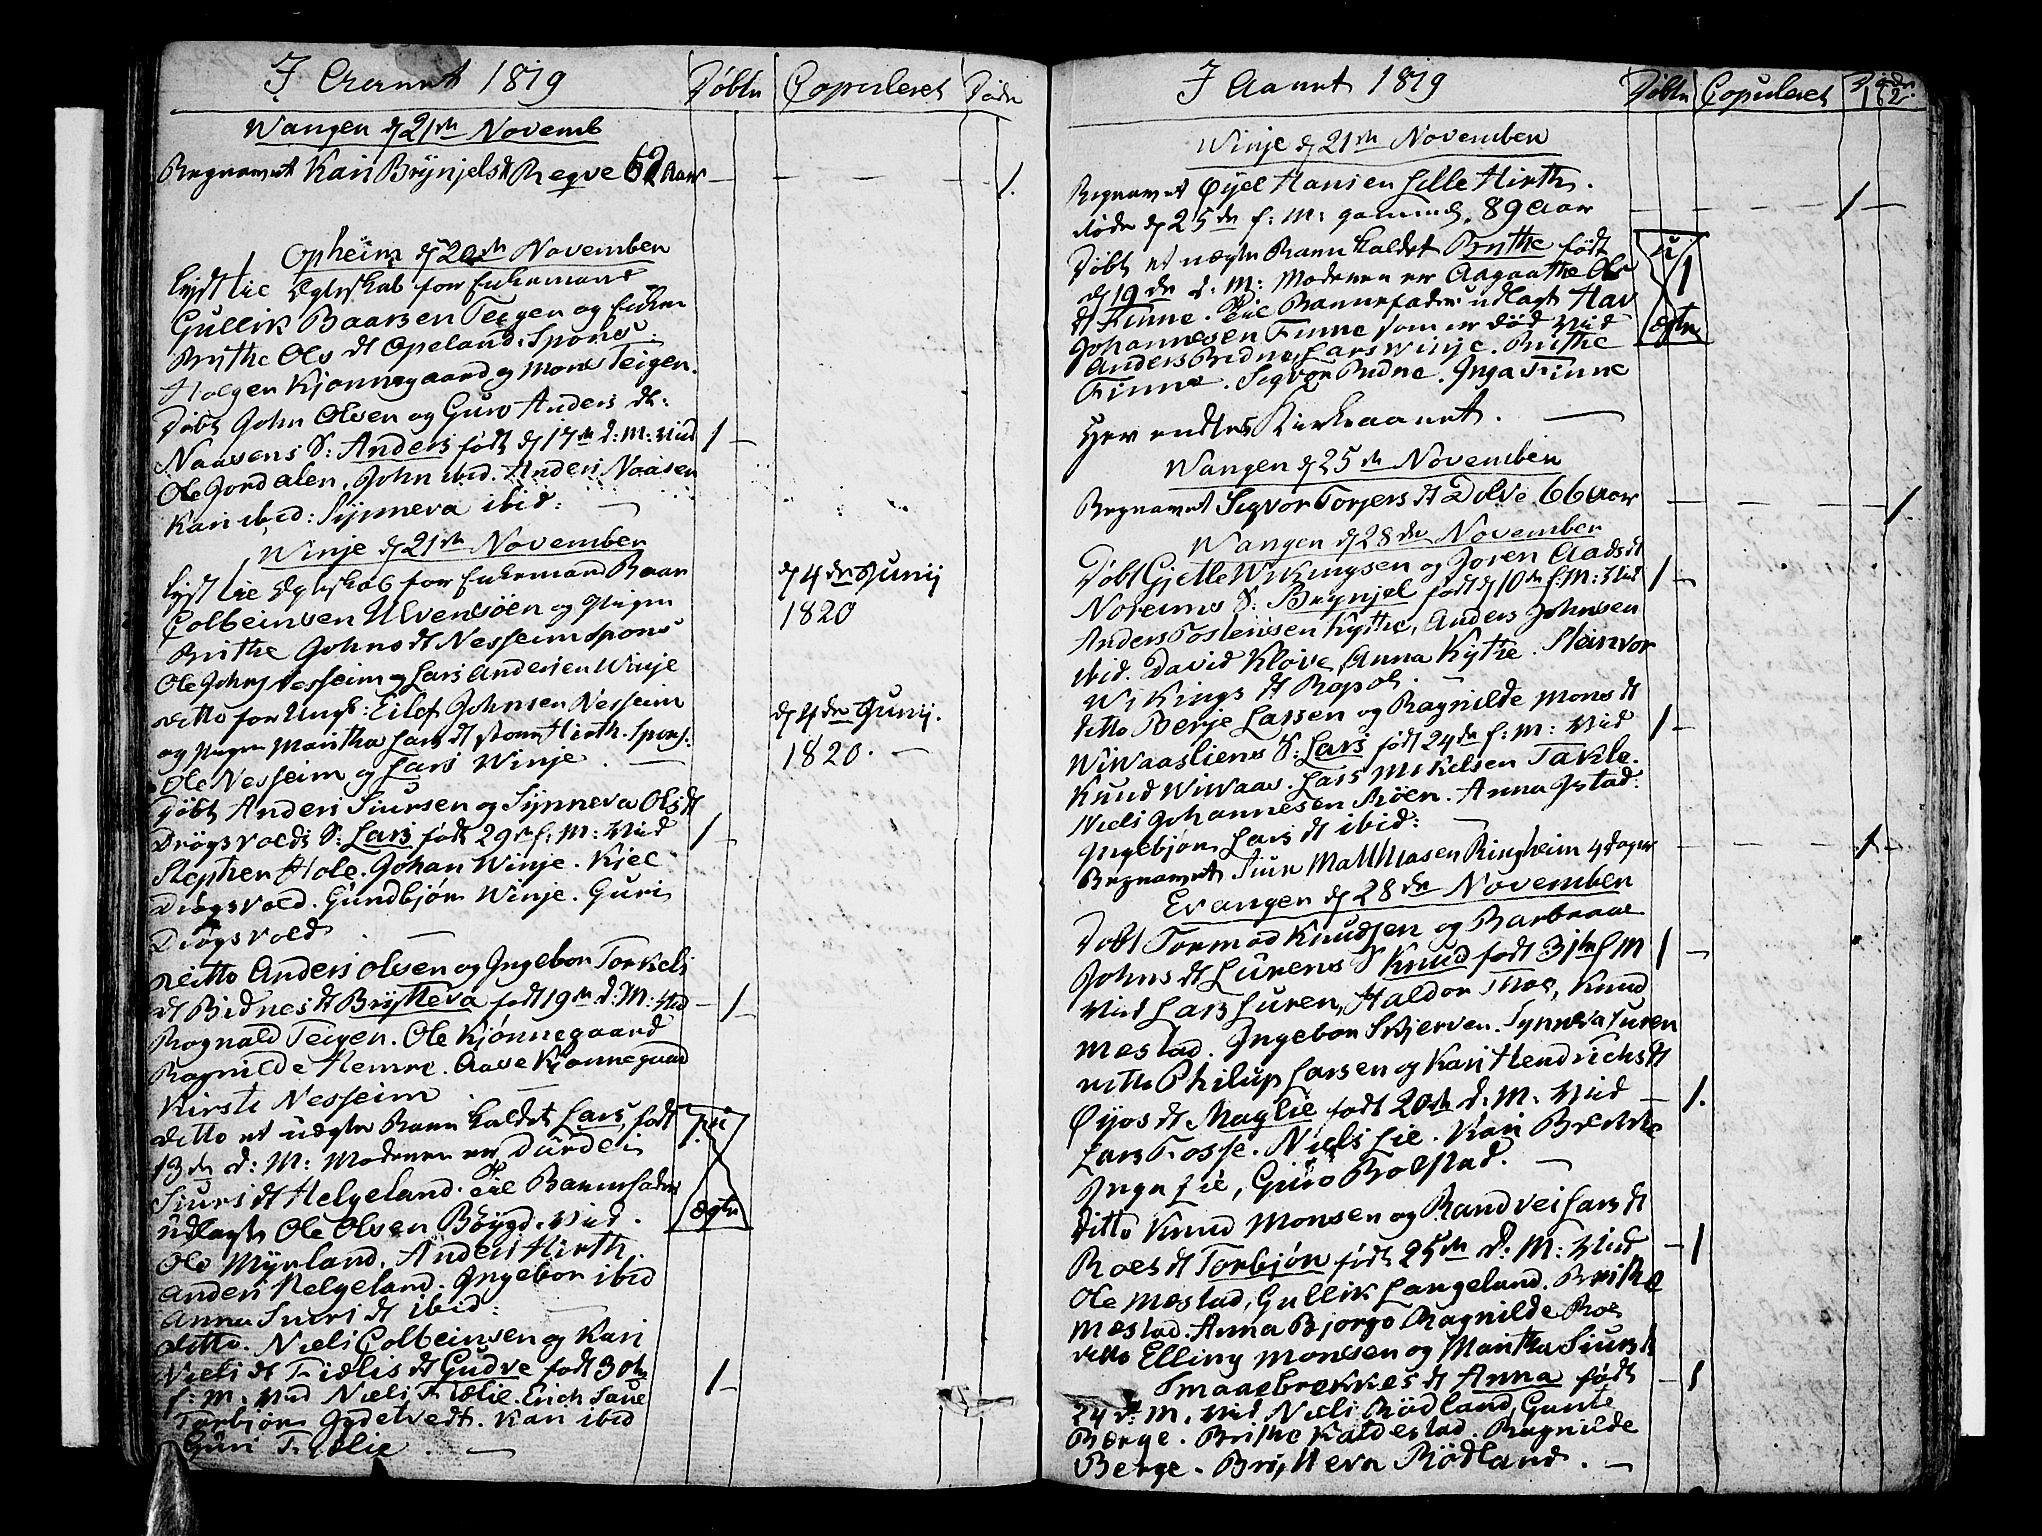 I Aaret 1819 Døbte Copuleret Døde
Wangen d 21de Novemb
Begravet Kari Brynjels dt Reqve 62 aar 1.
Opheim d 20de November
lyst til Egteskab for Enkemand
Gullik Baarsen Teigen og Enken
Brithe Ols dt Opeland. Spons:
Holgen Kjønnegaard og Mons Teigen.
Døbt John Olsen og Guro Anders dt:
Naasens S: Anders født d 17de d: M: Vid 1
Ole Jordalen, John ibid. Anders Naasen
Kari ibid: Synneva ibid:
Winje d 21de November
lyst til Egteskab for Enkemand Baar d 4de Junij
Colbeinsen Ulvensøen og Pigen 1820
Brithe Johns dt Nesheim Spons:
Ole Johns Nesheim og Lars Andersen Winje
ditto for Ungk: Eilef Johnsen Nesheim d 4de Junij.
og Pigen Maritha Lars dt store Hirth. Spons: 1820.
Ole Nesheim og Lars Winje.
Døbt Anders Siursen og Synneva Ols dt
Drøgsvolds S: Lars født 29de f: M: Vid 1
Stephen Hole. Johan Winje. Kiel
Drøgsvold. Gundbjør Winje. Guri
Drøgsvold
ditto Anders Olsen og Ingebor Torkels
dt Bidnes dt Brytteva født 19de d: M: Vid 1
Rognald Teigen. Ole Kjønnegaard
Ragnilde Hemre. Aase Kjønnegaard
Kirsti Nesheim
ditto et uægte Barn kaldet Lars, født 1 u
13de d: M: Moderen er Durdei
Siurs dt Helgeland. til Barnefader
udlagt Ole Olsen Bøygd. Vid. ægte
Ole Myrland. Anders Hirth.
Anders Helgeland. Ingebor ibid
Anna Siurs dt ibid:
ditto. Niels Colbeinsen og Kari
Niels dt Fielis dt Gudve født 30te
f: M: Vid Niels Fielie. Erich Saue 1
Torbjør Gjdetvedt. Kari ibid
Guri Fielie.
I Aaret 1819 Døbte Copuleret Døde
162.
Winje d 21de November
Begravet Øyel Hansen Lille Hirth. 1
døde d 25de f: M: gammel, 89 aar
Døbt et uægte Barn kaldet Brithe født u
d 19de d: M: Moderen er Aagaathe Ols 1
dt Finne. til Barnefader udlagt Hav
Johannesen Finne som er død Vid ægte
Anders Bidne, Lars Winje. Brithe
Finne. Sigvor Bidne. Inga Finne
Her endtes Kirkeaaret.
Wangen d 25de November
Begravet Sigvor Torjers dt Dolve 66 aar 1.
Wangen d 28de November
Døbt Gjelle Wikingsen og Joren Aads dt
Noreims S: Brynjel født d 10de f: M: Vid 1
Anders Tostensen Kythe, Anders Johnsen
ibid. David Kløve, Anna Kythe. Steinvor
Wikings dt Rapol.
ditto Berje Larsen og Ragnilde Mons dt
Wiwaasliens S: Lars født 24de f: M: Vid 1
Knud Wiwaas. Lars Mikelsen Takle.
Niels Johannesen Røen. Anna Jstad.
Ingebjør Lars dt ibid:
Begravet Siur Matthiasen Ringheim 4 dager 1
Evangen d 28de November
Døbt Tormod Knudsen og Barbraae
Johns dt Lurens S Knud født 31te f M 1
Vid Lars Luren, Haldor Thoe, Knud
Mestad. Ingebor Skjerven. Synneva Luren
ditto Philup Larsen og Kari Hendrichs dt
Øyos dt Maglie født 20de d: M: Vid 1.
Lars Fosse. Niels Lie. Kari Brekke
Inga Lie, Guro Bolstad.
ditto Knud Monsen og Randvei Lars dt
Roes dt Torbjør født 25de d: M: Vid 1
Ole Mestad, Gullik Langeland. Brithe
Mestad. Anna Bjorgo Ragnilde Roe
ditto Elling Monsen og Maritha Siurs dt
Smaaebrekkes dt Anna født 1
24 d: M. Vid Niels Rødland, Gunte
Berge. Brithe Kaldestad. Ragnilde
Berge. Brytteva Rødland.